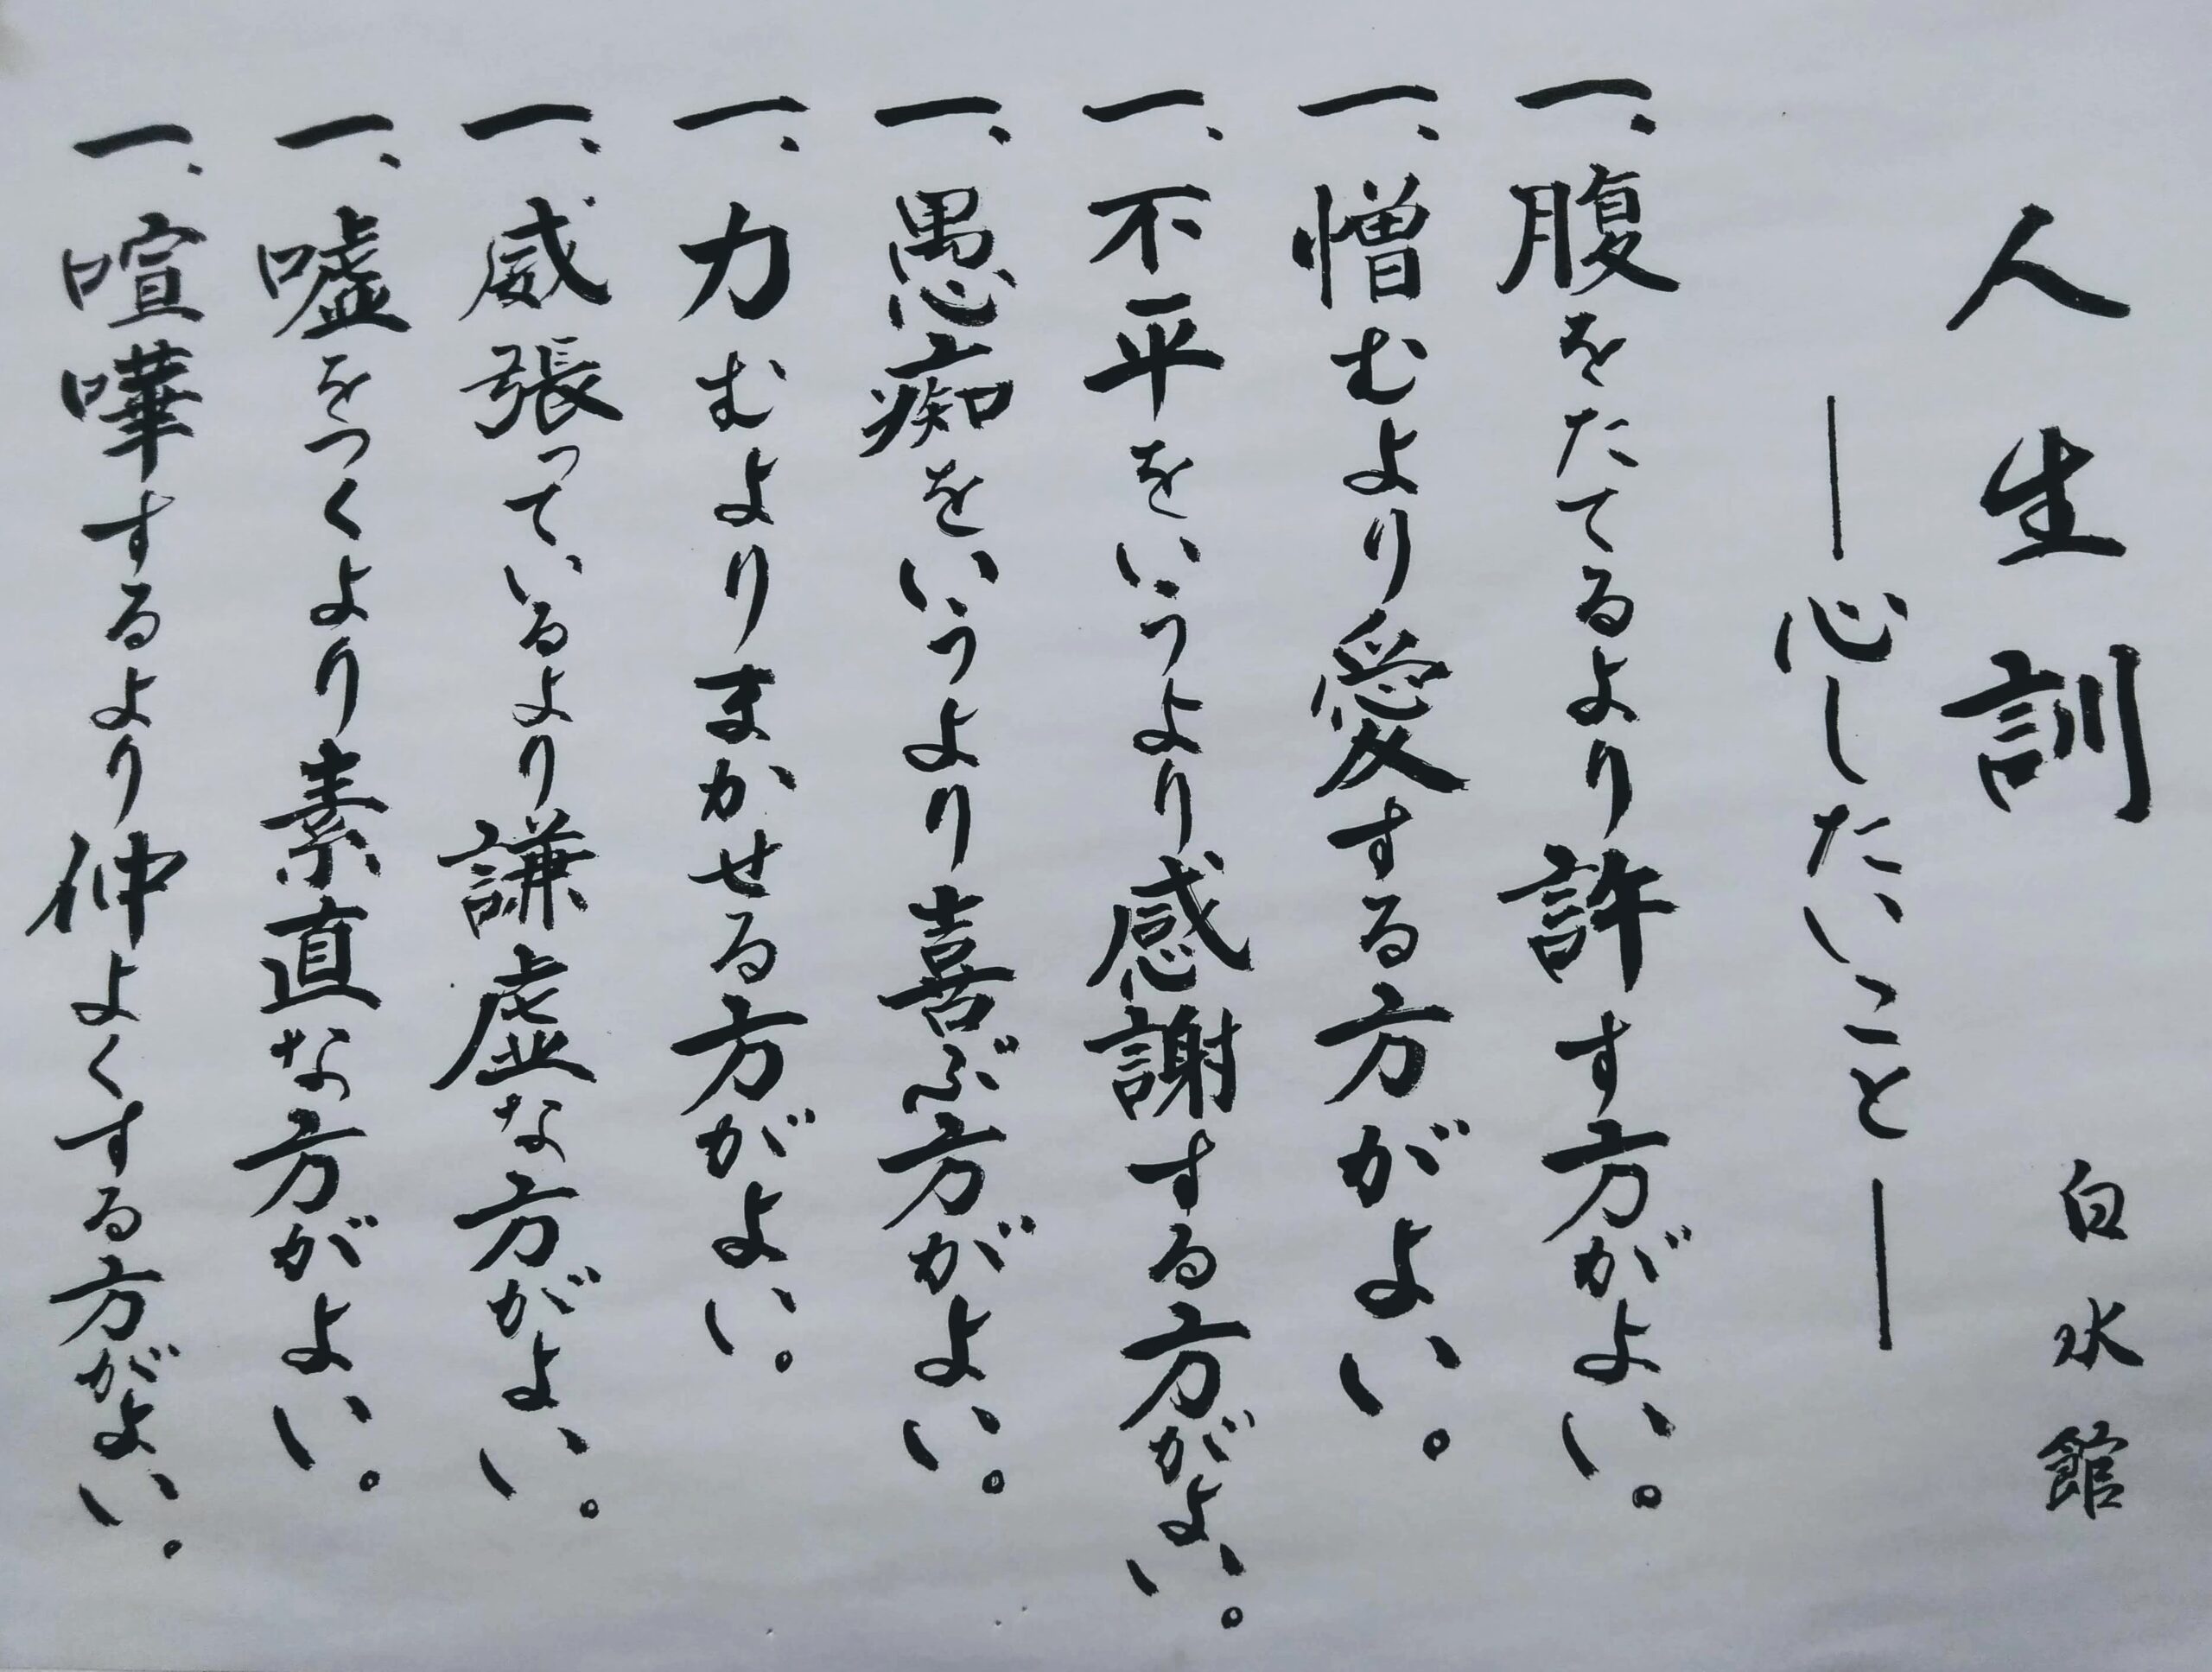 人生訓 白水館
―心したいこと―
一、腹をたてるより許す方がよい。
一、憎むより愛する方がよい。
一、不平をいうより感謝する方がよい。
一、愚痴をいうより喜ぶ方がよい。
一、力むよりまかせる方がよい。
一、威張っているより謙虚な方がよい。
一、嘘をつくより素直な方がよい。
一、喧嘩するより仲よくする方がよい。